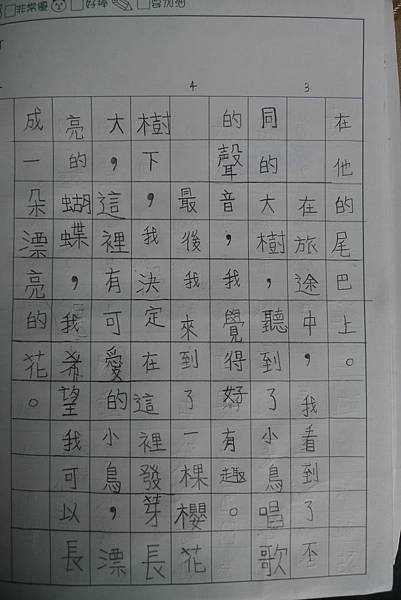 非常優 好棒
3
4
在他的尾巴上。
在旅途中，我看到了不
同的大樹，聽到了小鳥唱歌
的聲音，我覺得好有趣。
最後我來到了一棵櫻花
樹下，我決定在這裡發芽長
大，這裡有可愛的小鳥，漂
亮的蝴蝶，我希望我可以長
成一朵漂亮的花。